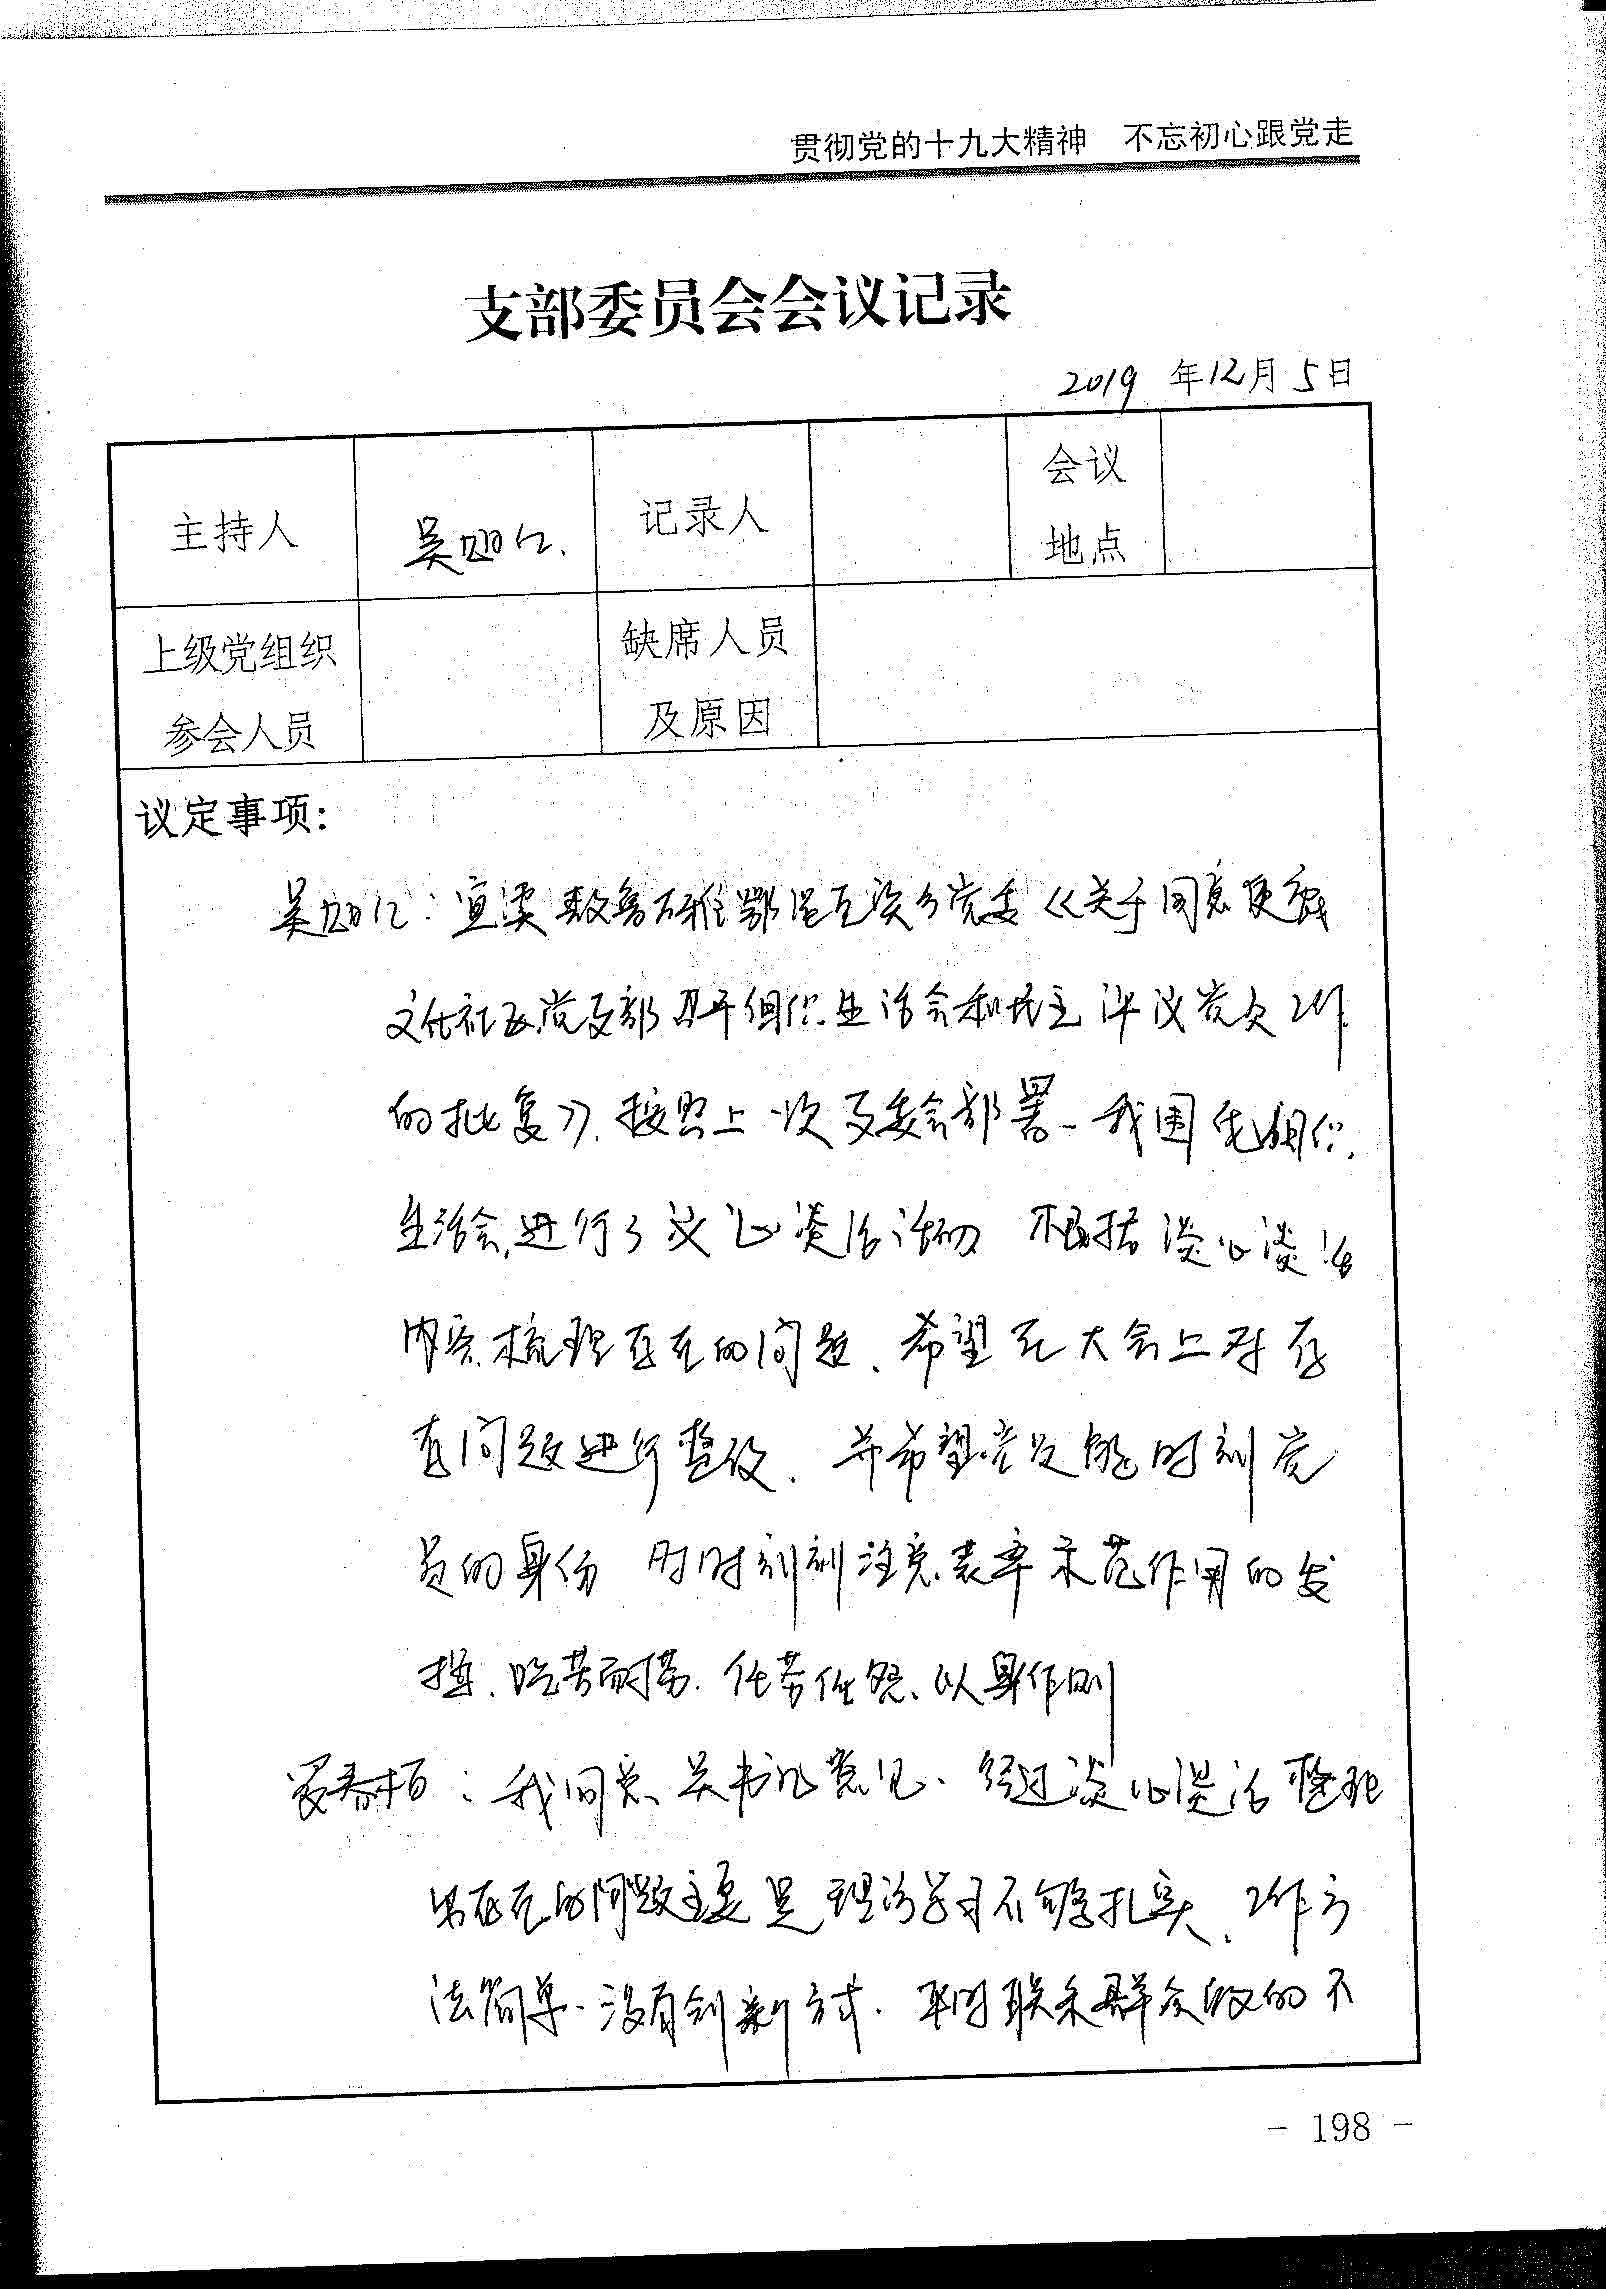 贯彻党的十九大精神 不忘初心跟党走
支部委员会会议记录
2019 年12月5日
主持人
吴旭仁.
记录人
会议
地点
上级党组织
参会人员
缺席人员
及原因
议定事项:
吴旭仁: 宣读敖鲁古雅鄂温克族乡党委《关于同意
文化社区党支部召开组织生活会和民主评议党员工作
的批复》. 按照上一次支委会部署、我围绕组织
生活会,进行了谈心谈话活动 根据谈心谈话
内容梳理存在的问题、希望在大会上对存
在问题进行整改、并希望党员能时刻党
员的身份 时时刻刻注意表率示范作用的发
挥、吃苦耐劳、任劳任怨、以身作则
春柏: 我同意吴书记意见、经过谈心谈话整理
出存在的问题主要是理论学习不够扎实、工作方
法简单、没有创新方式、平时联系群众做的不
- 198 -